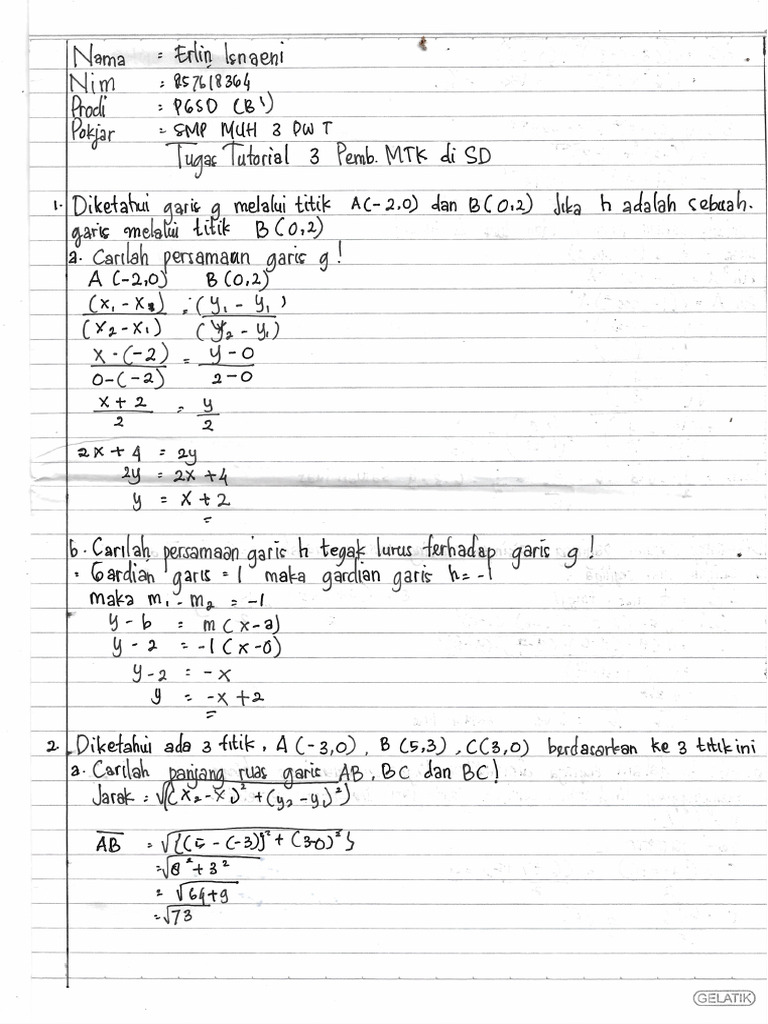 Nama : Erlin Isnaeni
Nim : 857618364
Prodi : PGSD (B1)
Pokjar : SMP MUH 3 PWT
Tugas Tutorial 3 Pemb. MTK di SD
1. Diketahui garis g melalui titik A(-2,0) dan B(0,2) Jika h adalah sebuah.
garis melalui titik B(0,2)
a. Carilah persamaan garis g!
A (-2,0) B(0,2)
(x1 - x2) = (y1 - y1)
(x2 - x1) (y2 - y1)
x - (-2) = y - 0
0-(-2) 2-0
x + 2 = y
2 2
2x + 4 = 2y
2y = 2x + 4
y = x + 2
b. Carilah persamaan garis h tegak lurus terhadap garis g!
= Gardian garis = 1 maka gardian garis h = -1
maka m1 - m2 = -1
y - b = m(x-a)
y - 2 = -1(x-0)
y - 2 = -x
y = -x + 2
2. Diketahui ada 3 titik, A(-3,0), B(5,3), C(3,0) berdasarkan ke 3 titik ini
a. Carilah panjang ruas garis AB, BC dan BC!
Jarak = √(x2-x1)² + (y2-y1)²)
AB = √{(5 - (-3))² + (3-0)²}
= √8² + 3²
= √64+9
= √73
GELATIK